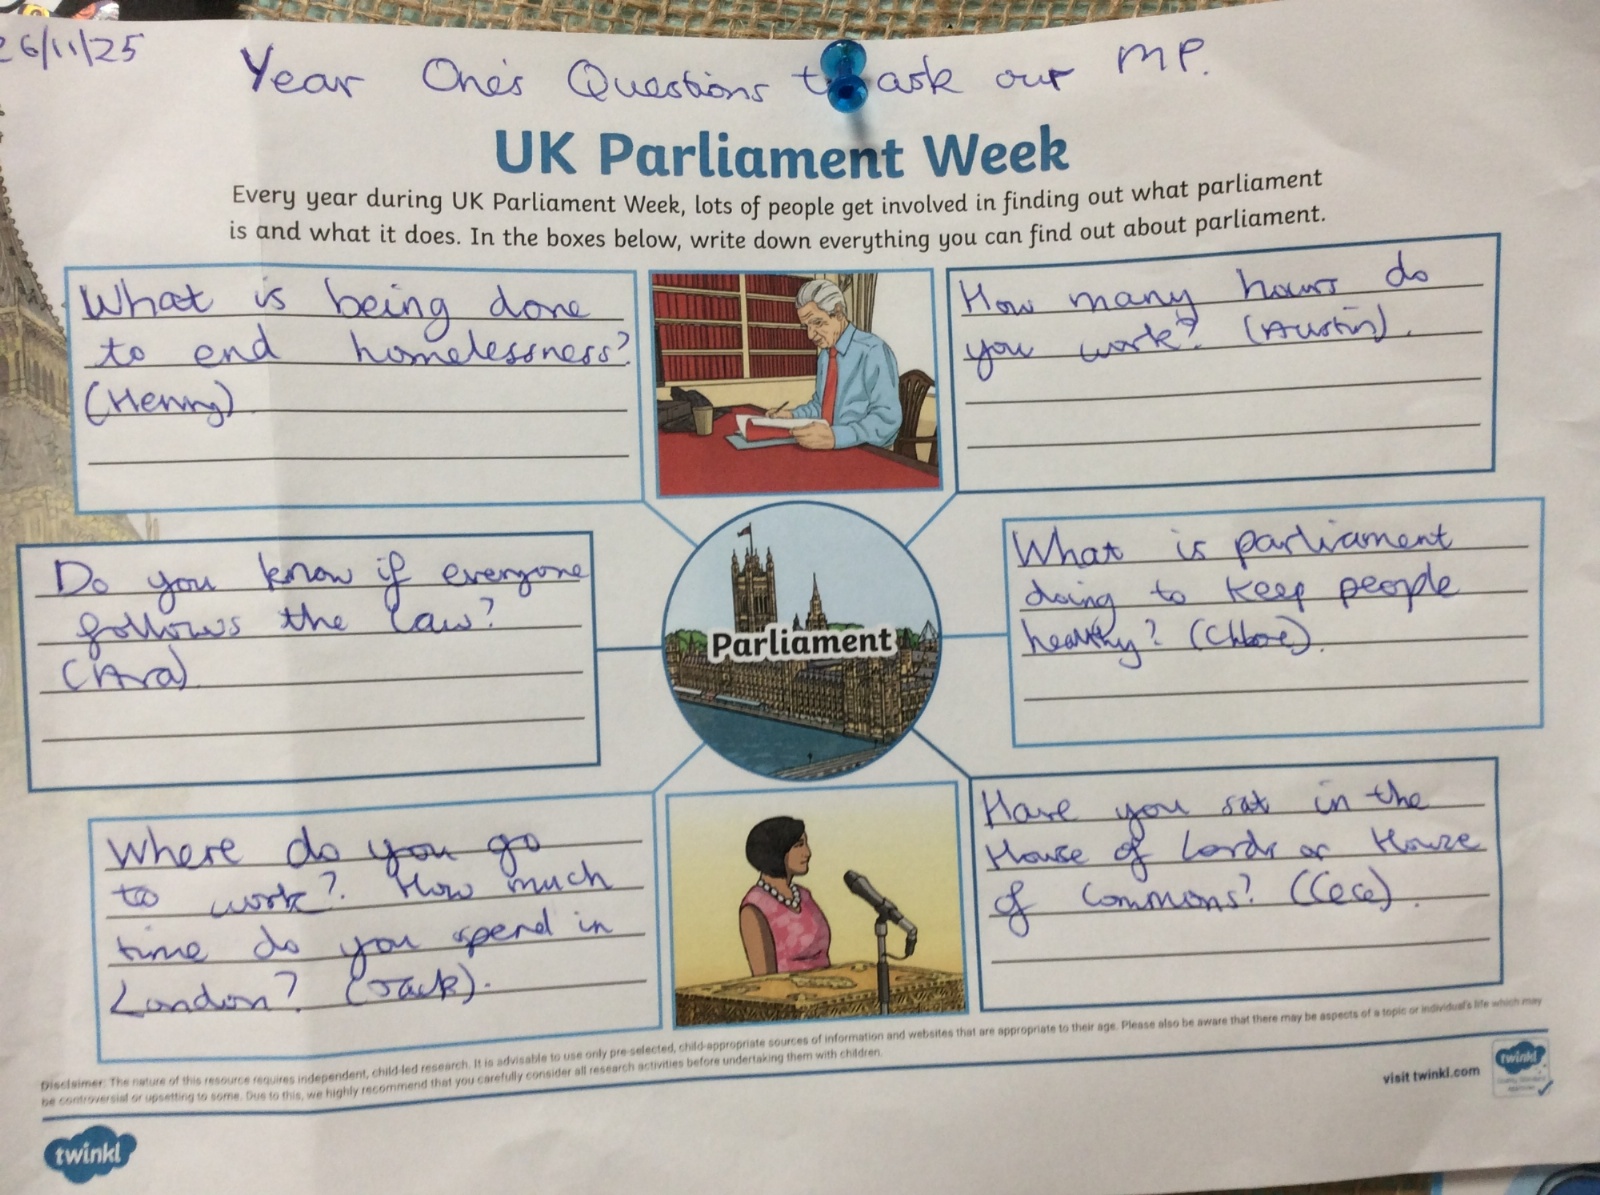 26/11/25
Year One's Questions to ask our MP.
UK Parliament Week
Every year during UK Parliament Week, lots of people get involved in finding out what parliament
is and what it does. In the boxes below, write down everything you can find out about parliament.
What is being done
to end homelessness?
(Henry)
How many hours do
you work? (Austin).
Do you know if everyone
follows the law?
(Ava)
Parliament
What is parliament
doing to keep people
healthy? (Chloe).
Where do you go
to work? How much
time do you spend in
London? (Jack).
Have you sat in the
House of Lords or House
of Commons? (Cece).
Disclaimer: The nature of this resource requires independent, child-led research. It is advisable to use only pre-selected, child-appropriate sources of information and websites that are appropriate to their age. Please also be aware that there may be aspects of a topic or individual's life which may
be controversial or upsetting to some. Due to this, we highly recommend that you carefully consider all research activities before undertaking them with children.
visit twinkl.com
twinkl
Quality Standard
Approved
twinkl